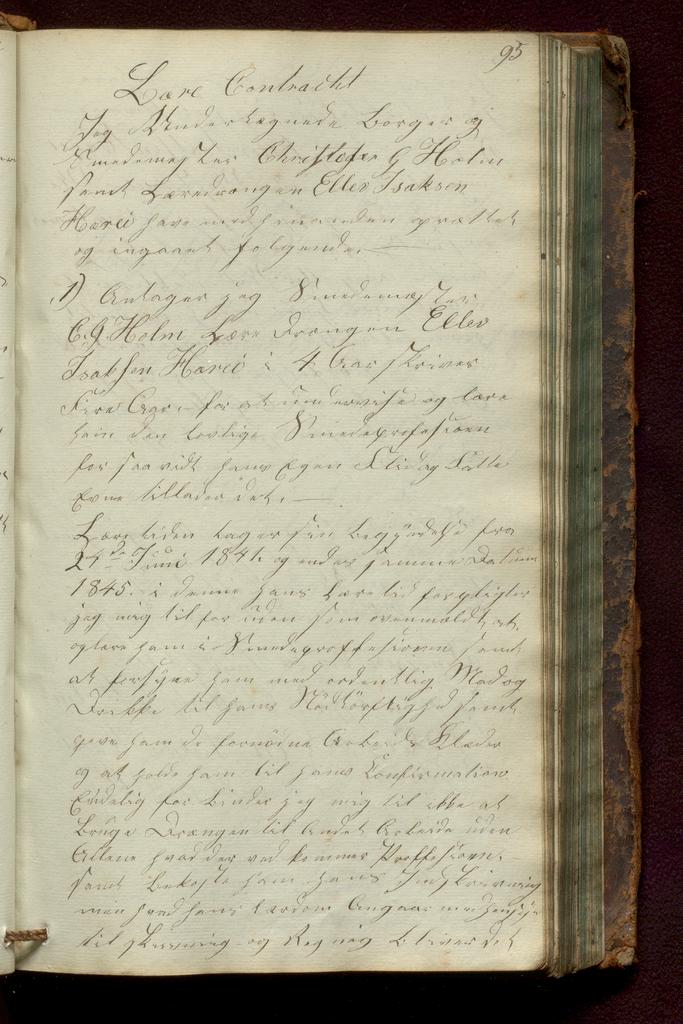 95
Lære Contracht
Jeg Undertegnede Borger og
Smedemester Christofer G Holm
samt Læredrængen Ellev Isaksen
Harei have med hinanden oprættet
og ingaaet følgende. —
1) Antager jeg Smedemester
C. G. Holm Lære Drængen Ellev
Isaksen Harei i 4 Aar skriver
Fire Aar – for at undervise og lære
ham den lovlige Smedeprofesioen
for saavidt hans Egen Flid og Fatte
Evne tillader det. —
Lære tiden tager sin begÿndelse fra
24de Juni 1841. og ender samme Datum
1845. i denne hans Læretid forpligter
jeg mig til foruden som ovenmældt, at
oplære ham i Smedeproffesionen samt
at forsÿne ham med ordentlig Mad og
Drekke til hans Nödtörftighed samt
give ham de fornödne Arbeids Klæder
og at holde ham til hans Confirmation
Endelig forbinder jeg mig til ikke at
Bruge Drængen til Andet Arbeide uden
Allene hvad der ved kommer Proffesionen.
samt bekoste ham hans Indskrivning
men hvad hans lærdom Angaar med hensÿn
til skrivning og Regning bliver det